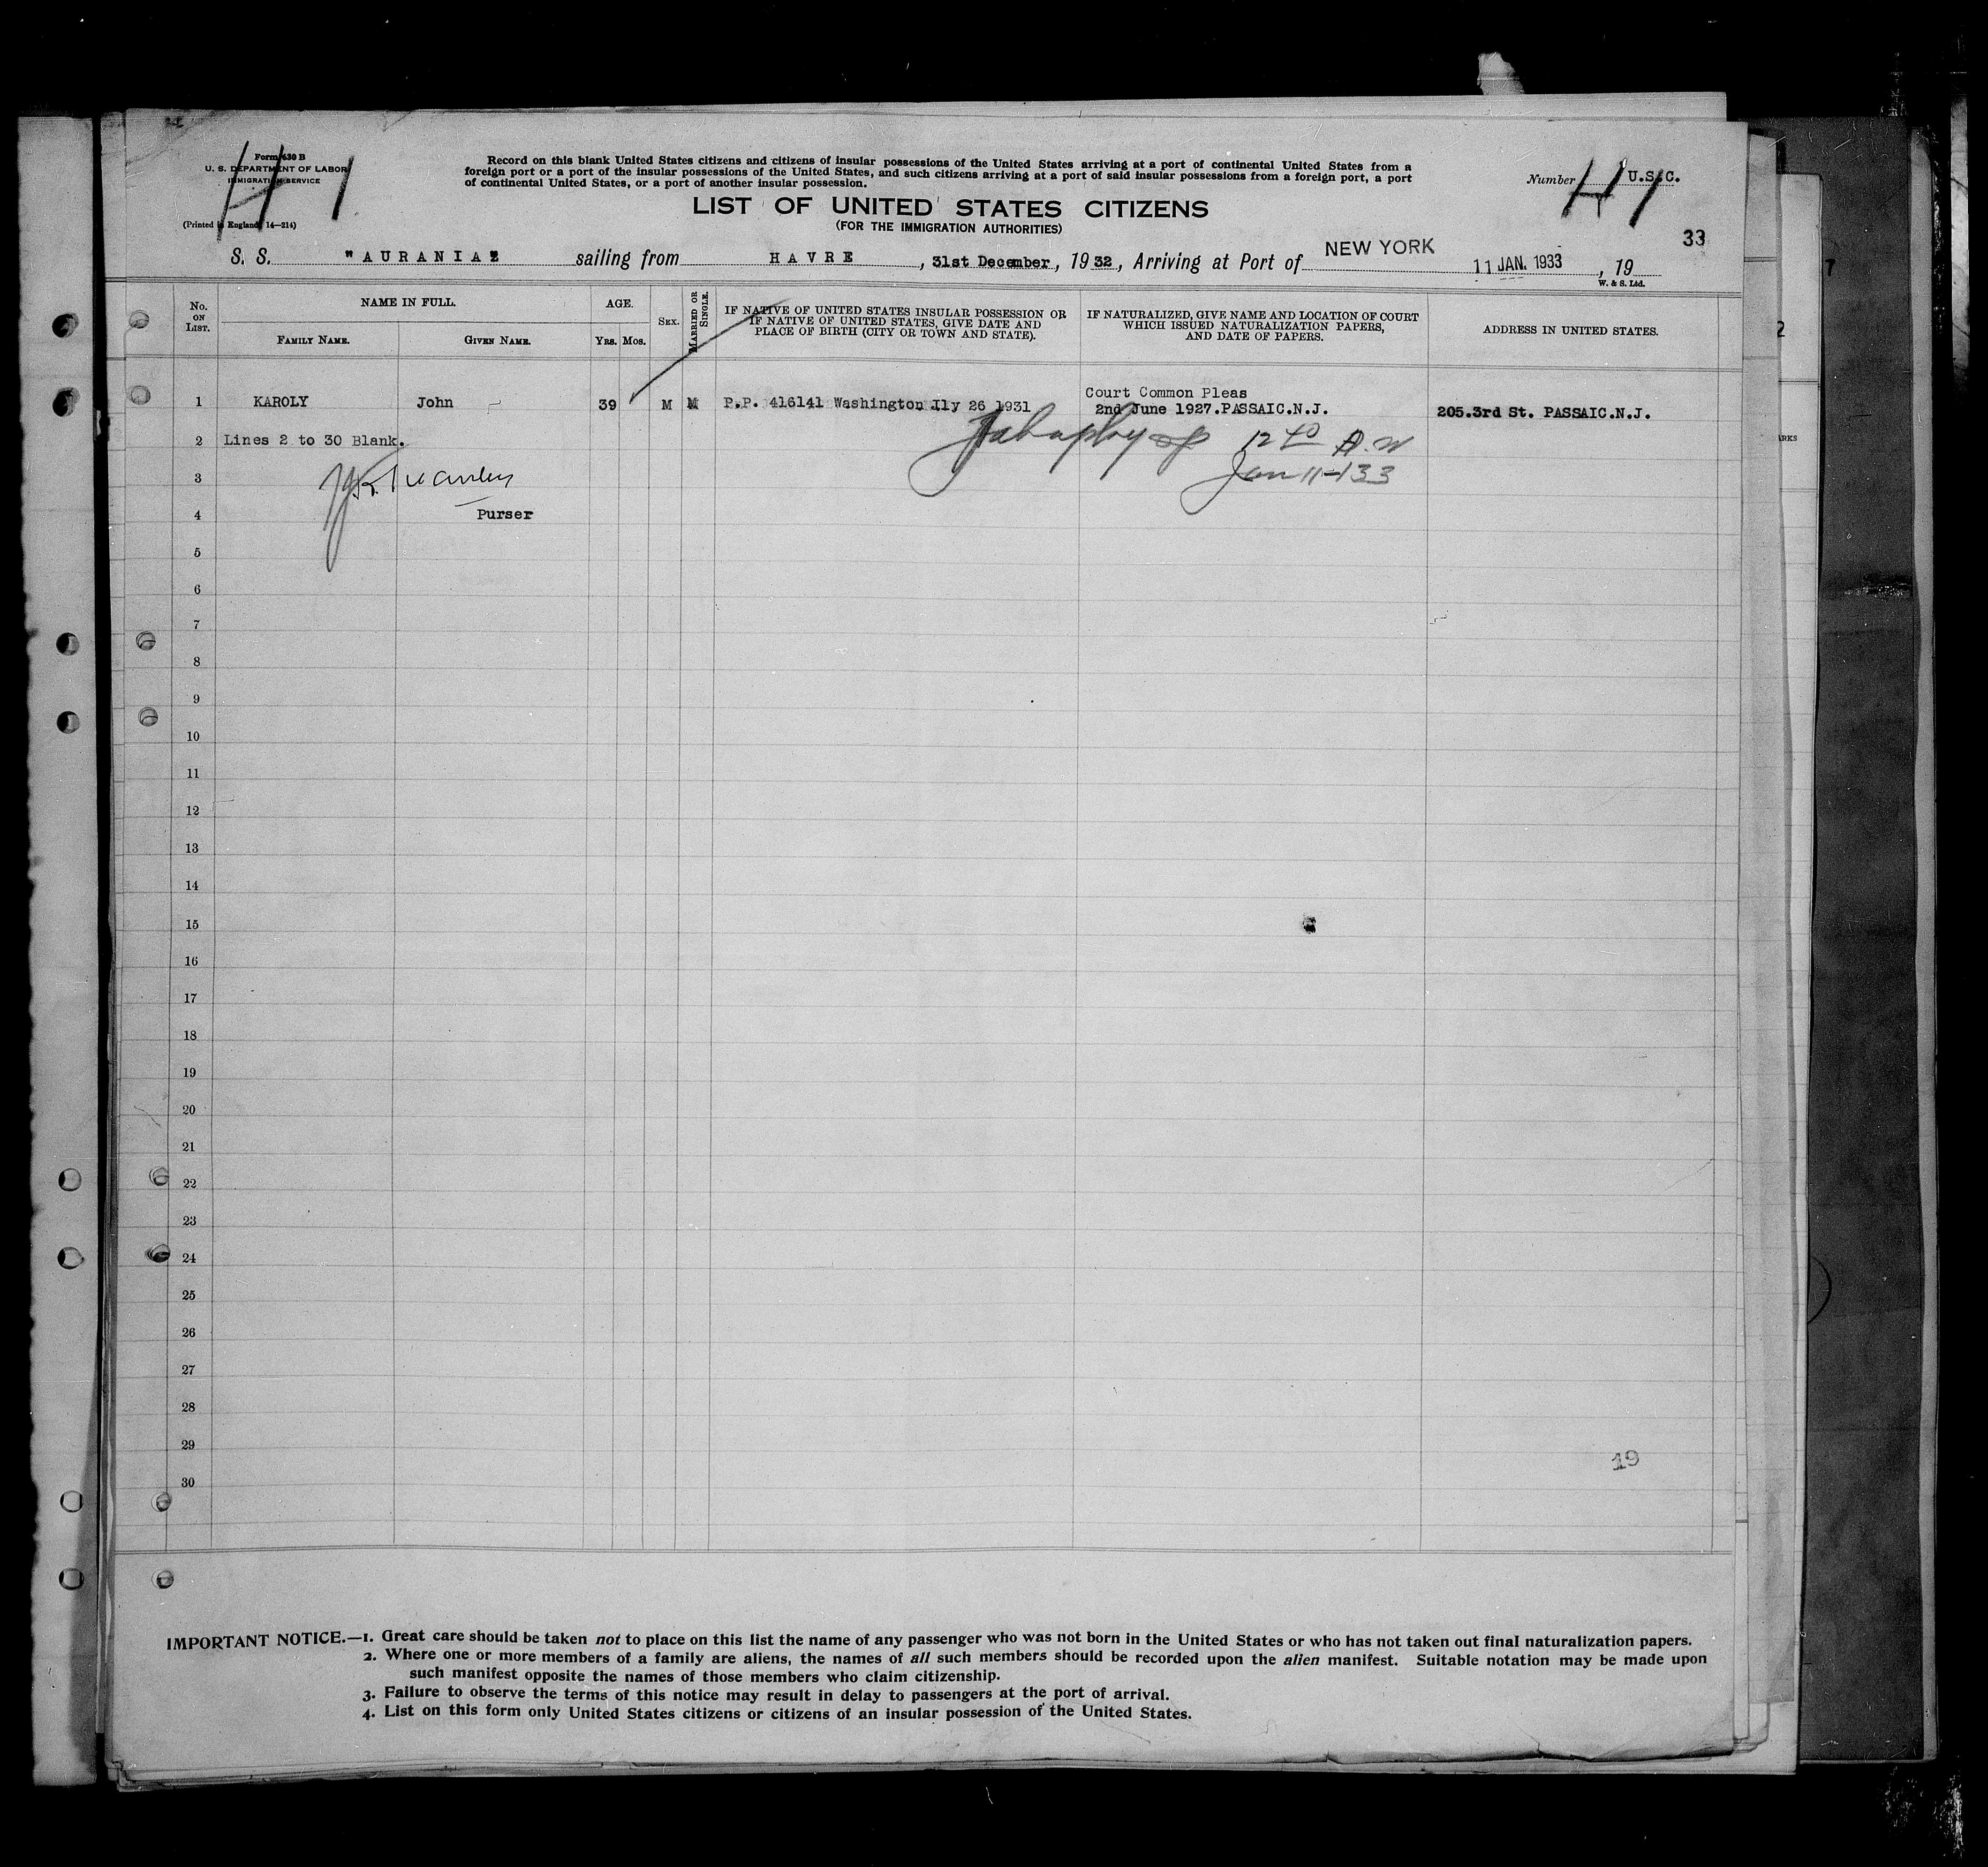 Form 630 B
U. S. DEPARTMENT OF LABOR
IMMIGRATION SERVICE
(Printed in England, 14—214)
H 1
Record on this blank United States citizens and citizens of insular possessions of the United States arriving at a port of continental United States from a
foreign port or a port of the insular possessions of the United States, and such citizens arriving at a port of said insular possessions from a foreign port, a port
of continental United States, or a port of another insular possession.
Number H 1 U.S.C.
LIST OF UNITED STATES CITIZENS
(FOR THE IMMIGRATION AUTHORITIES)
33
S. S. "AURANIA" sailing from HAVRE, 31st December, 1932, Arriving at Port of NEW YORK 11 JAN. 1933, 19
W. & S. Ltd.
No. ON LIST.
NAME IN FULL.
FAMILY NAME. GIVEN NAME.
AGE.
YRS. MOS.
SEX.
MARRIED OR SINGLE.
IF NATIVE OF UNITED STATES INSULAR POSSESSION OR
IF NATIVE OF UNITED STATES, GIVE DATE AND
PLACE OF BIRTH (CITY OR TOWN AND STATE).
IF NATURALIZED, GIVE NAME AND LOCATION OF COURT
WHICH ISSUED NATURALIZATION PAPERS,
AND DATE OF PAPERS.
ADDRESS IN UNITED STATES.
1 KAROLY John 39 M M P.P. 416141 Washington Jly 26 1931 Court Common Pleas
2nd June 1927.PASSAIC.N.J. 205.3rd St. PASSAIC.N.J.
2 Lines 2 to 30 Blank.
3 Jan 11-133
4 Purser
5
6
7
8
9
10
11
12
13
14
15
16
17
18
19
20
21
22
23
24
25
26
27
28
29
19
30
IMPORTANT NOTICE.—1. Great care should be taken not to place on this list the name of any passenger who was not born in the United States or who has not taken out final naturalization papers.
2. Where one or more members of a family are aliens, the names of all such members should be recorded upon the alien manifest. Suitable notation may be made upon
such manifest opposite the names of those members who claim citizenship.
3. Failure to observe the terms of this notice may result in delay to passengers at the port of arrival.
4. List on this form only United States citizens or citizens of an insular possession of the United States.